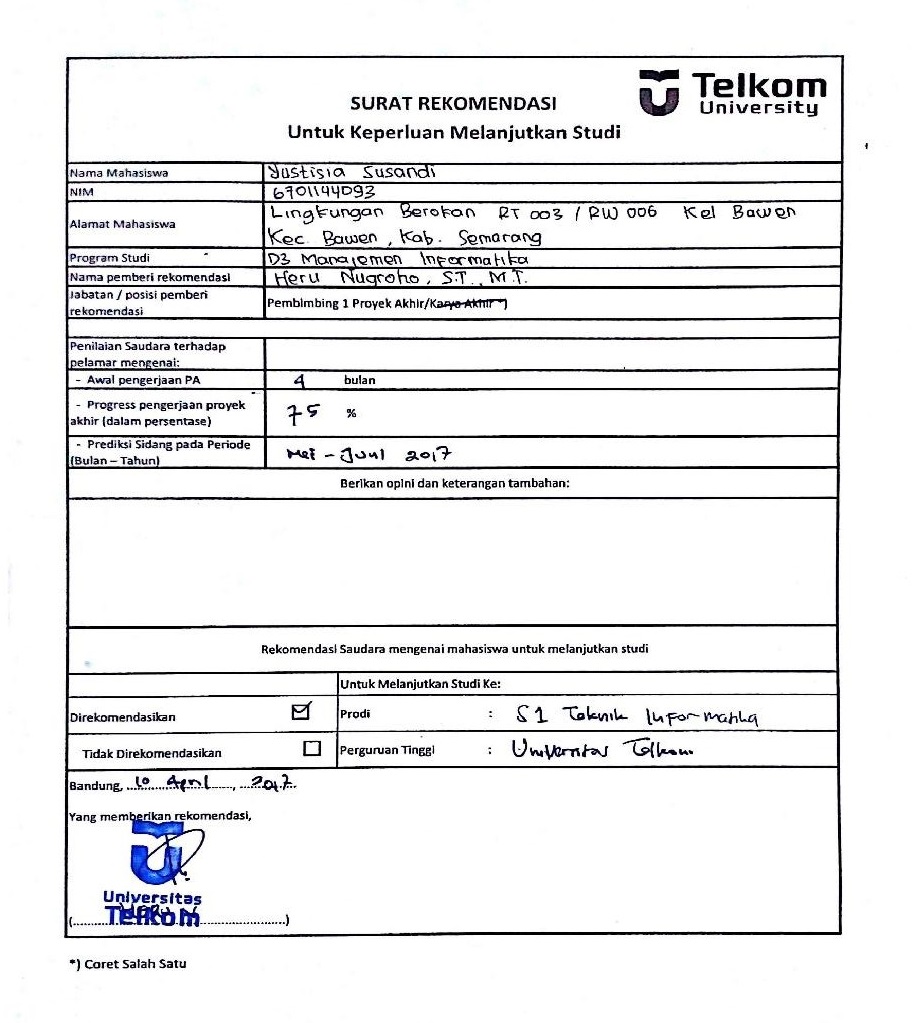 SURAT REKOMENDASI
Untuk Keperluan Melanjutkan Studi
Telkom
University
Nama Mahasiswa Yustisia Susandi
NIM 6701144093
Alamat Mahasiswa Lingkungan Berokan RT 003 / RW 006 Kel Bawen
Kec. Bawen, Kab. Semarang
Program Studi D3 Manajemen Informatika
Nama pemberi rekomendasi Heru Nugroho, S.T., M.T.
Jabatan / posisi pemberi
rekomendasi Pembimbing 1 Proyek Akhir/Karya Akhir *)
Penilaian Saudara terhadap
pelamar mengenai:
- Awal pengerjaan PA 4 bulan
- Progress pengerjaan proyek
akhir (dalam persentase) 75 %
- Prediksi Sidang pada Periode
(Bulan – Tahun) Mei - Juni 2017
Berikan opini dan keterangan tambahan:
Rekomendasi Saudara mengenai mahasiswa untuk melanjutkan studi
Untuk Melanjutkan Studi Ke:
Direkomendasikan ☑ Prodi : S1 Teknik Informatika
Tidak Direkomendasikan ☐ Perguruan Tinggi : Universitas Telkom
Bandung, 10 April, 2017
Yang memberikan rekomendasi,
Universitas
Telkom
(....................)
*) Coret Salah Satu